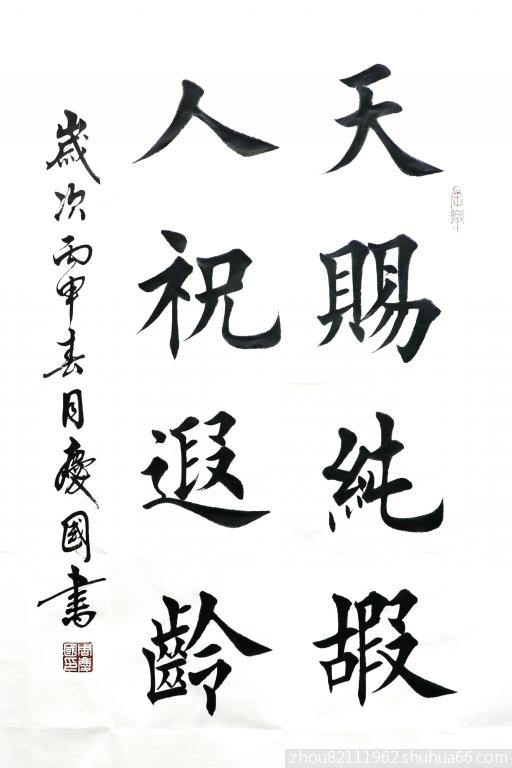 天賜純嘏
人祝遐齡
歲次丙申春月慶國書
zhou82111962.shuhua66.com